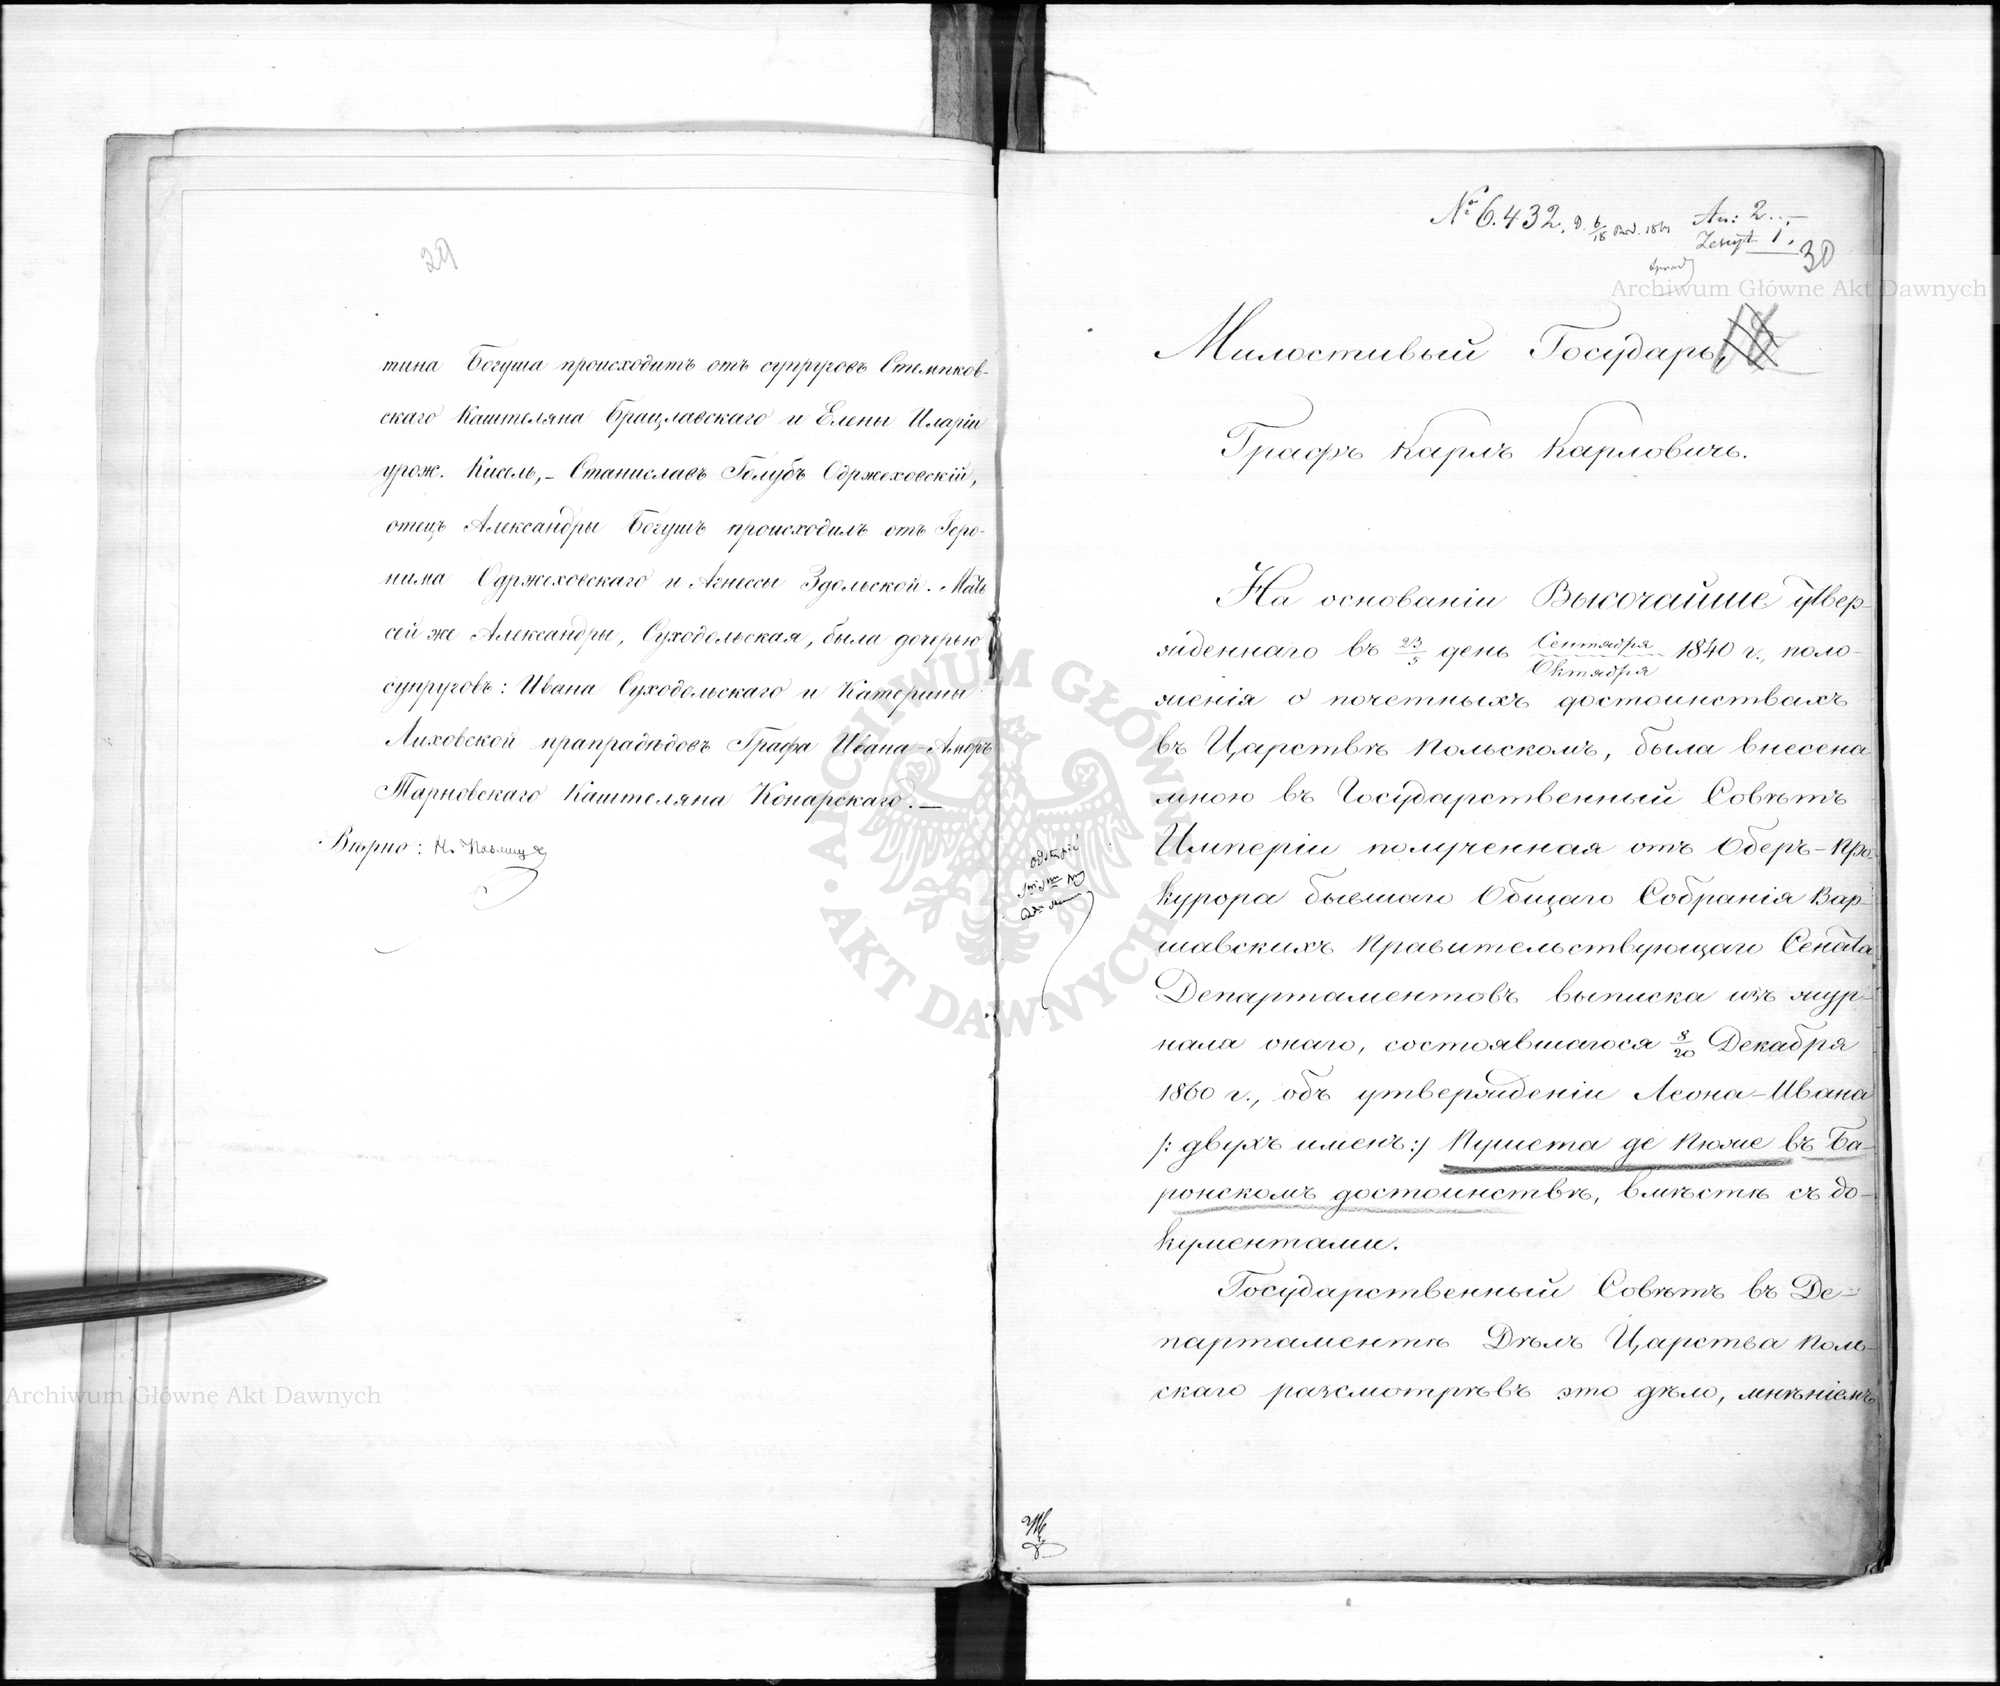 29
тина Богуша происходитъ отъ супруговъ Стемпков-
скаго Каштеляна Брацлавскаго и Елены Иларіи
урож. Кисель,- Станиславъ Голубъ Одржеховскій,
отецъ Александры Богушъ происходилъ отъ Іеро-
нима Одржеховскаго и Агнессы Здольской. Мать
сей же Александры, Суходольская, была дочерью
супруговъ: Ивана Суходольскаго и Катерины
Лиховской прапрадѣдовъ Графа Ивана-Аморъ
Тарновскаго Каштеляна Конарскаго.—
Вѣрно:
№ 6.432. D. 6/18 1861
An: 2
Zeszyt 1.
30
Милостивый Государь,
Графъ Карлъ Карловичъ.
На основаніи Высочайше утвер-
жденнаго въ 23/5 день Сентября/Октября 1840 г., поло-
женія о почетныхъ достоинствахъ
въ Царствѣ Польскомъ, была внесена
мною въ Государственный Совѣтъ
Имперіи полученная отъ Оберъ-Про-
курора бывшаго Общаго Собранія Вар-
шавскихъ Правительствующаго Сената
Департаментовъ выписка изъ жур-
нала онаго, состоявшагося 8/20 Декабря
1860 г., объ утвержденіи Леона-Ивана
/: двухъ именъ:/ Пушета де Пюже въ Ба-
ронскомъ достоинствѣ, вмѣстѣ съ до-
кументами.
Государственный Совѣтъ въ Де-
партаментѣ Дѣлъ Царства Поль-
скаго разсмотрѣвъ это дѣло, мнѣніемъ
Archiwum Główne Akt Dawnych
Archiwum Główne Akt Dawnych
ARCHIWUM GŁÓWNE AKT DAWNYCH